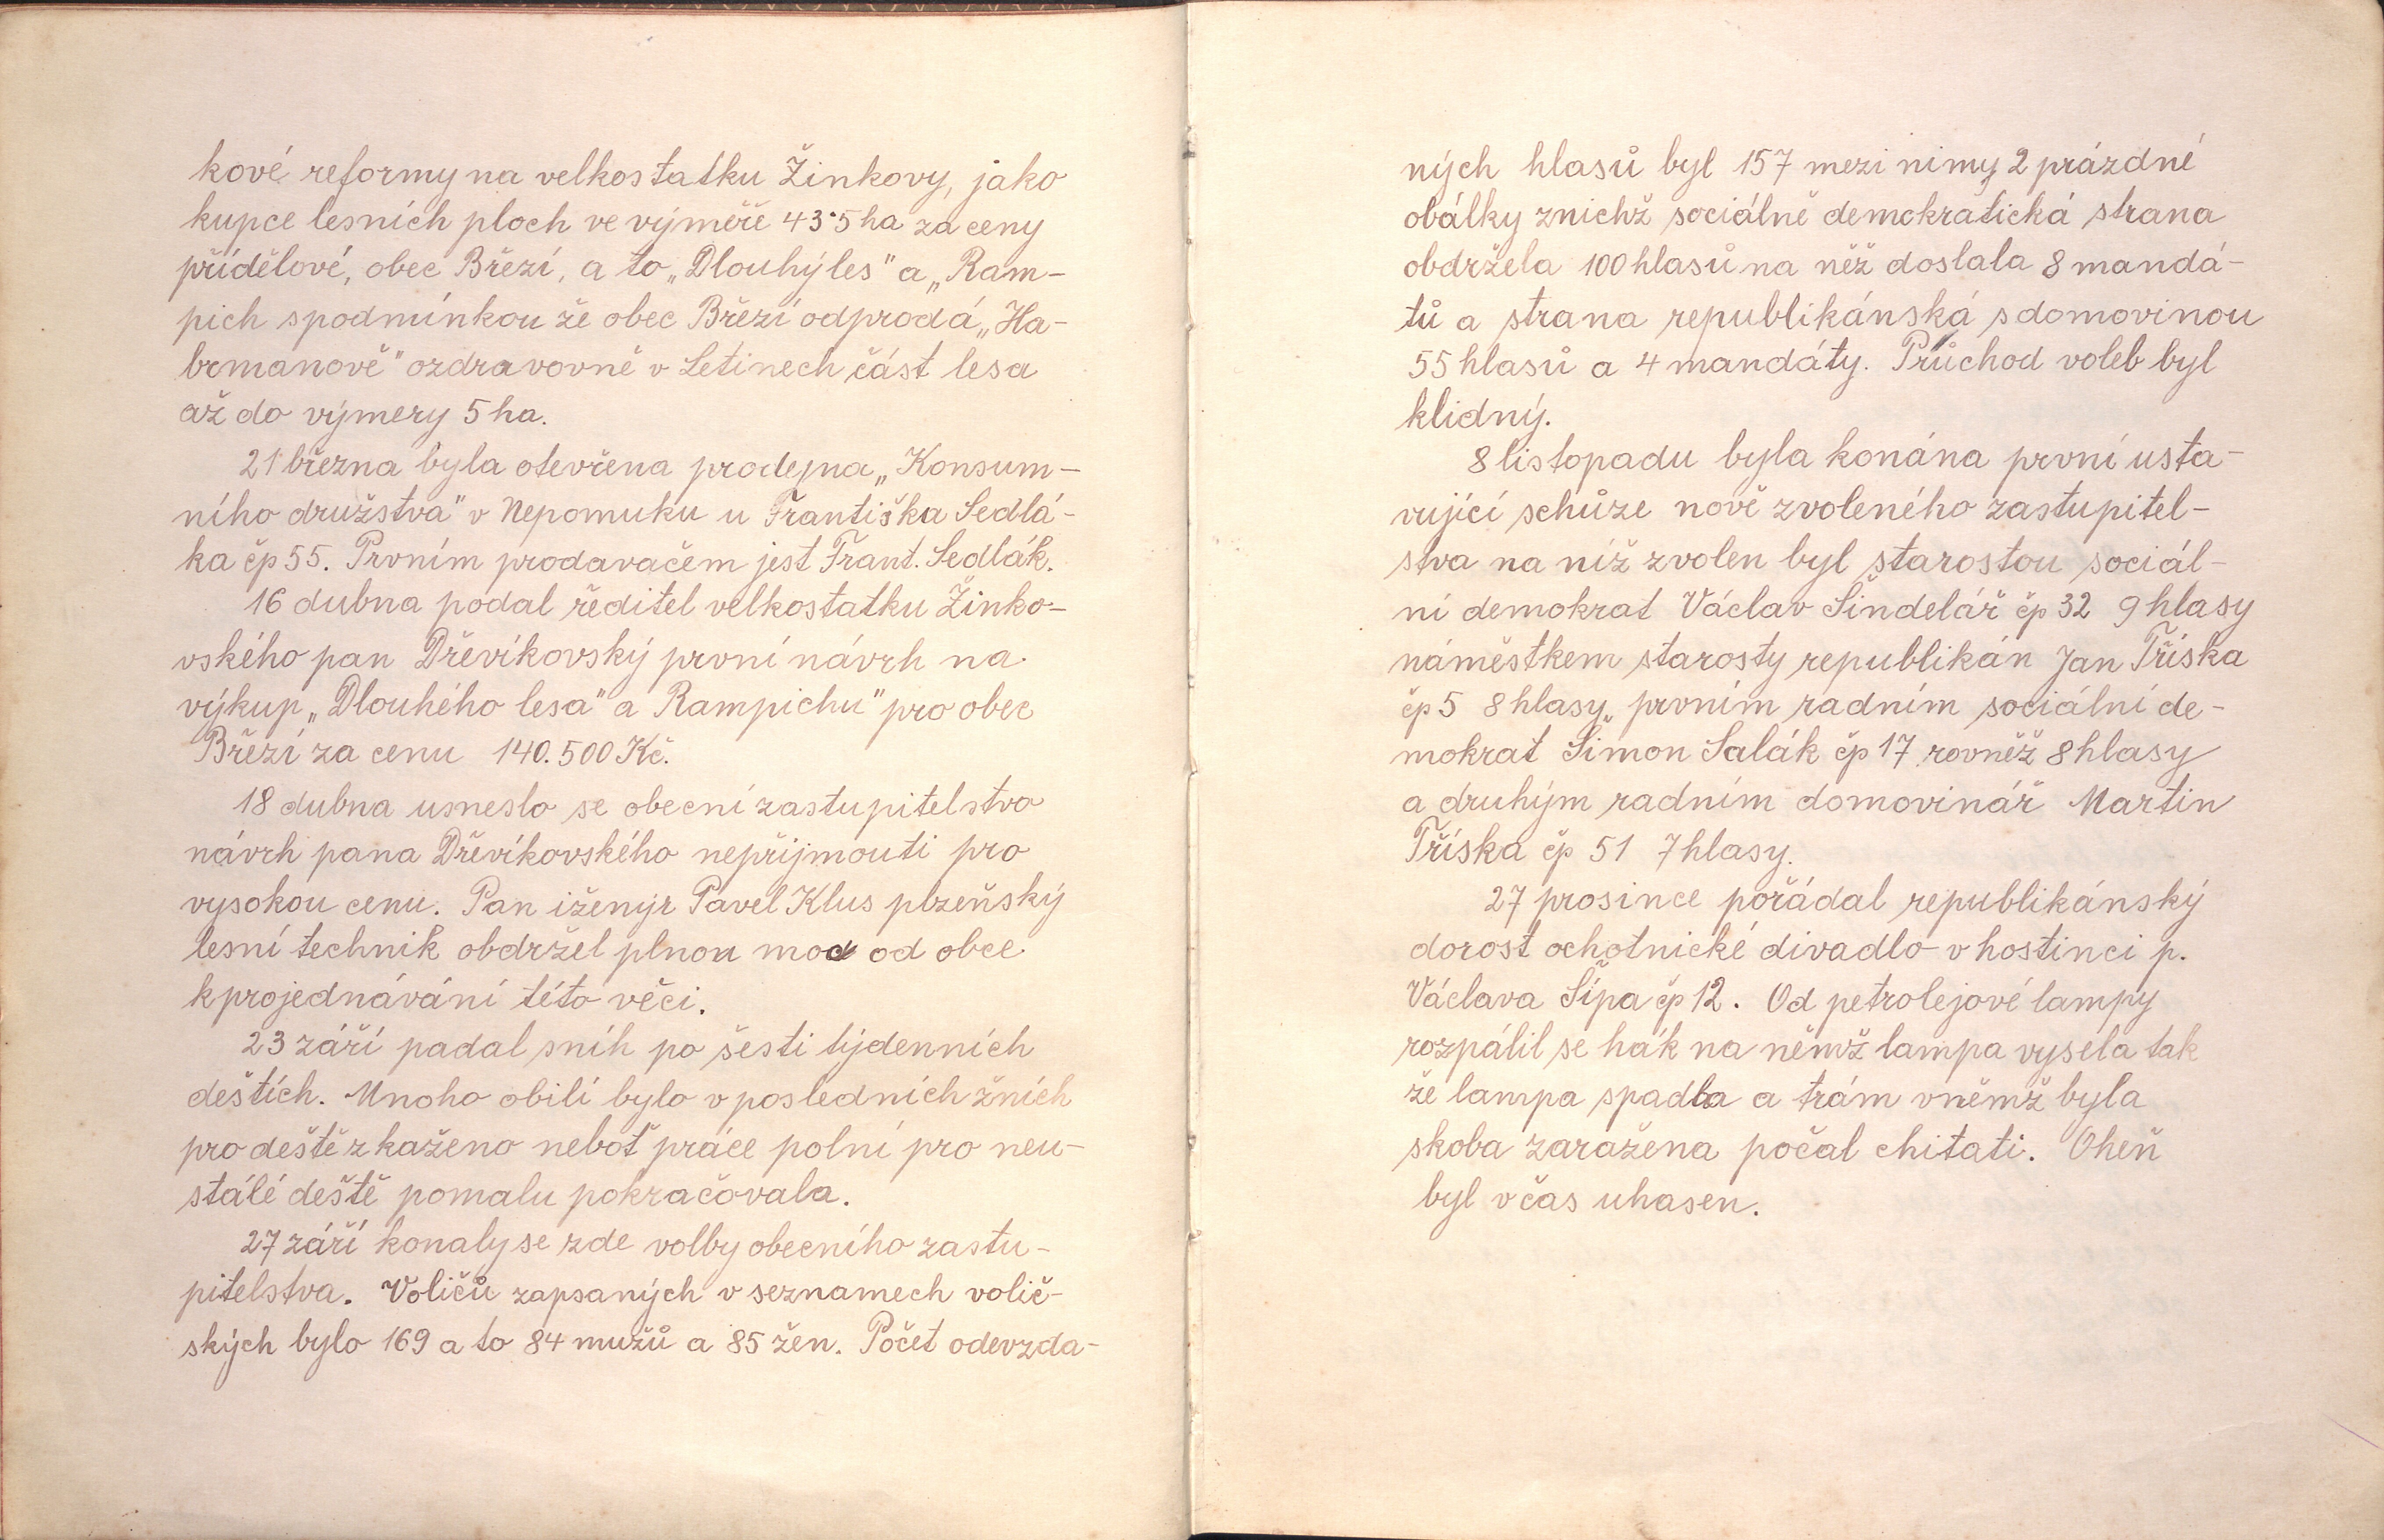 kové reformy na velkostatku Žinkovy, jako
kupce lesních ploch ve výměře 43·5 ha za ceny
přídělové, obec Březí, a to „Dlouhý les" a „Ram-
pich spodmínkou že obec Březí odprodá „Ha-
brmanově" ozdravovně v Letinech část lesa
až do výmery 5 ha.
21 března byla otevřena prodejna „Konsum-
ního družstva" v Nepomuku u Františka Sedlá-
ka čp 55. Prvním prodavačem jest Frant. Sedlák.
16 dubna podal ředitel velkostatku Žinko-
vského pan Dřevíkovský první návrh na
výkup „Dlouhého lesa" a Rampichu" pro obec
Březí za cenu 140.500 Kč.
18 dubna usneslo se obecní zastupitelstvo
návrh pana Dřevíkovského nepřijmouti pro
vysokou cenu. Pan iženýr Pavel Klus plzeňský
lesní technik obdržel plnou moc od obce
kprojednávání této věci.
23 září padal sníh po šesti týdenních
deštích. Mnoho obilí bylo v posledních žních
pro deště zkaženo neboť práce polní pro neu-
stálé deště pomalu pokračovala.
27 září konaly se zde volby obecního zastu-
pitelstva. Voličů zapsaných v seznamech volič-
ských bylo 169 a to 84 mužů a 85 žen. Počet odevzda-
ných hlasů byl 157 mezi nimy 2 prázdné
obálky znichž sociálně demokratická strana
obdržela 100 hlasů na něž doslala 8 mandá-
tů a strana republikánská sdomovinou
55 hlasů a 4 mandáty. Průchod voleb byl
klidný.
8 listopadu byla konána první usta-
vující schůze nově zvoleného zastupitel-
stva na níž zvolen byl starostou sociál-
ní demokrat Václav Šindelář čp 32 9 hlasy
náměstkem starosty republikán Jan Tříska
čp 5 8 hlasy, prvním radním sociální de-
mokrat Šimon Salák čp 17 rovněž 8 hlasy
a druhým radním domovinář Martin
Tříska čp 51 7 hlasy.
27 prosince pořádal republikánský
dorost ochotnické divadlo v hostinci p.
Václava Šípa čp 12. Od petrolejové lampy
rozpálil se hák na němž lampa vysela tak
že lampa spadla a trám vněmž byla
skoba zaražena počal chitati. Oheň
byl včas uhasen.